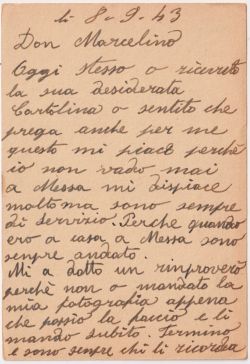 li 8-9-43
Don Marcelino
Oggi stesso o ricevuto
la sua desiderata
Cartolina o sentito che
prega anche per me
questo mi piace perchè
io non vado mai
a Messa mi dispiace
molto ma sono sempre
di servizio. Perche quando
ero a casa a Messa sono
senpre andato.
Mi a datto un rinprovero
perchè non o mandato la
mia fotografia appena
che possio la faccio e li
mando subito. Termino
e sono senpre chi li ricorda